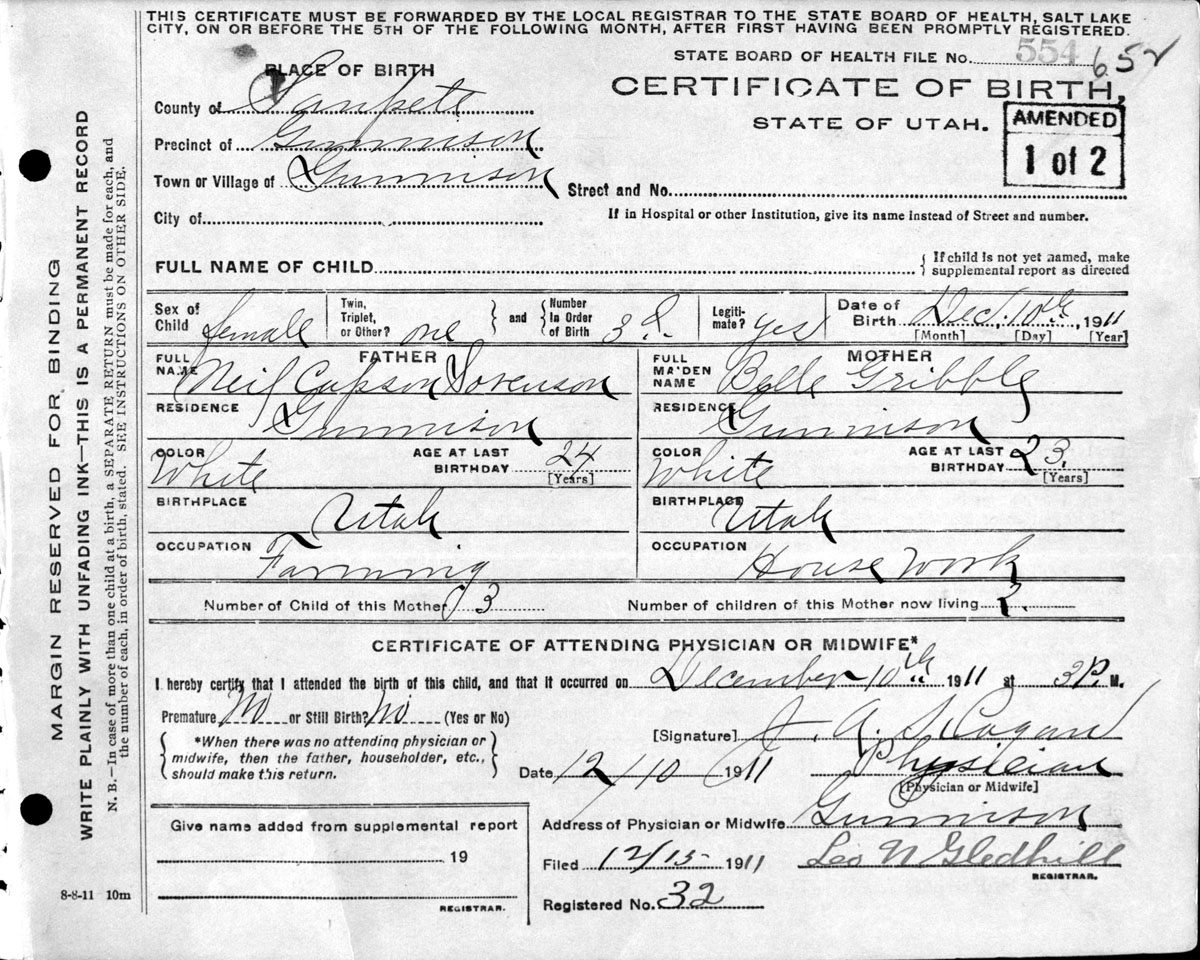 THIS CERTIFICATE MUST BE FORWARDED BY THE LOCAL REGISTRAR TO THE STATE BOARD OF HEALTH, SALT LAKE
CITY, ON OR BEFORE THE 5TH OF THE FOLLOWING MONTH, AFTER FIRST HAVING BEEN PROMPTLY REGISTERED.
STATE BOARD OF HEALTH FILE No. 554 652
PLACE OF BIRTH
CERTIFICATE OF BIRTH,
STATE OF UTAH.
AMENDED
1 of 2
County of Sanpete
Precinct of Gunnison
Town or Village of Gunnison Street and No.
City of If in Hospital or other Institution, give its name instead of Street and number.
FULL NAME OF CHILD { If child is not yet named, make
supplemental report as directed
Sex of Child female Twin, Triplet, or Other? one } and { Number In Order of Birth 3d Legiti-mate? yes Date of Birth Dec. 10th, 1911
[Month] [Day] [Year]
FATHER MOTHER
FULL NAME Neil Capson Sorenson FULL MAIDEN NAME Belle Gribble
RESIDENCE Gunnison RESIDENCE Gunnison
COLOR White AGE AT LAST BIRTHDAY 24 [Years] COLOR White AGE AT LAST BIRTHDAY 23. [Years]
BIRTHPLACE Utah BIRTHPLACE Utah
OCCUPATION Farming OCCUPATION House Work
Number of Child of this Mother 3 Number of children of this Mother now living 2.
CERTIFICATE OF ATTENDING PHYSICIAN OR MIDWIFE*
I hereby certify that I attended the birth of this child, and that it occurred on December 10th 1911 at 3P. M.
Premature No or Still Birth? No (Yes or No)
{ *When there was no attending physician or
midwife, then the father, householder, etc.,
should make this return. }
[Signature] J. A.
Date 12/10 1911 Physician
[Physician or Midwife]
Give name added from supplemental report
19
REGISTRAR.
Address of Physician or Midwife Gunnison
Filed 12/15 1911 Leo N Gledhill
REGISTRAR.
Registered No. 32
8-8-11 10m
MARGIN RESERVED FOR BINDING
WRITE PLAINLY WITH UNFADING INK—THIS IS A PERMANENT RECORD
N. B.—In case of more than one child at a birth, a SEPARATE RETURN must be made for each, and
the number of each, in order of birth, stated. SEE INSTRUCTIONS ON OTHER SIDE.